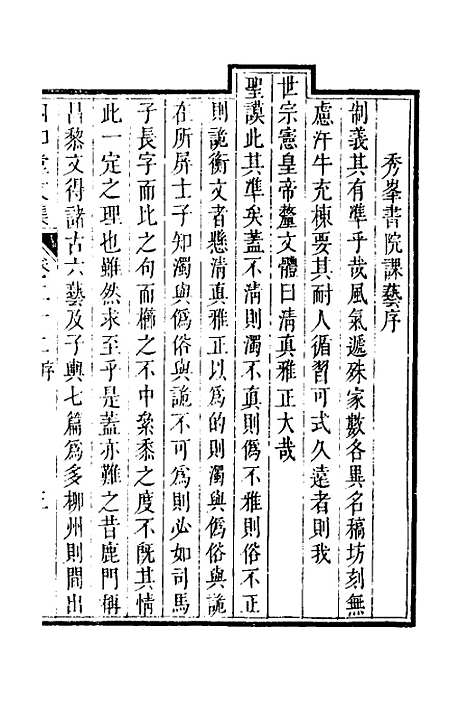 秀峯書院課藝序
制義其有準乎哉風氣遞殊家數各異名稿坊刻無
慮汗牛充棟要其耐人循習可式久遠者則我
世宗憲皇帝釐文體曰清真雅正大哉
聖謨此其準矣蓋不清則濁不真則僞不雅則俗不正
則詭衡文者懸清真雅正以為的則濁與僞俗與詭
在所屏士子知濁與僞俗與詭不可為則必如司馬
子長字而比之句而櫛之不中絫黍之度不旣其情
此一定之理也雖然求至乎是蓋亦難之昔鹿門稱
昌黎文得諸古六藝及子輿七篇為多柳州則間出
堂文集 卷二十二序 三